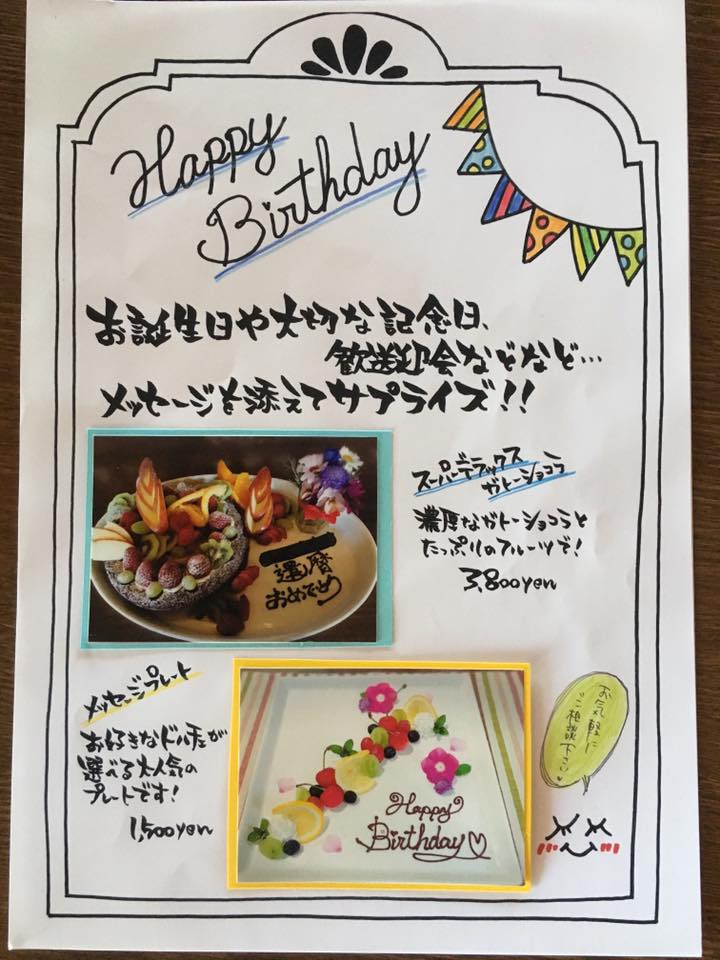 Happy
Birthday
お誕生日や大切な記念日、
歓送迎会などなど…
メッセージを添えてサプライズ!!
スーパーデラックス
ガトーショコラ
濃厚なガトーショコラと
たっぷりのフルーツで!
3,800yen
還暦
おめでとう
メッセージプレート
お好きなドルチェが
選べる大人気の
プレートです!
1,500yen
Happy
Birthday♡
お気軽に
ご相談下さい♥